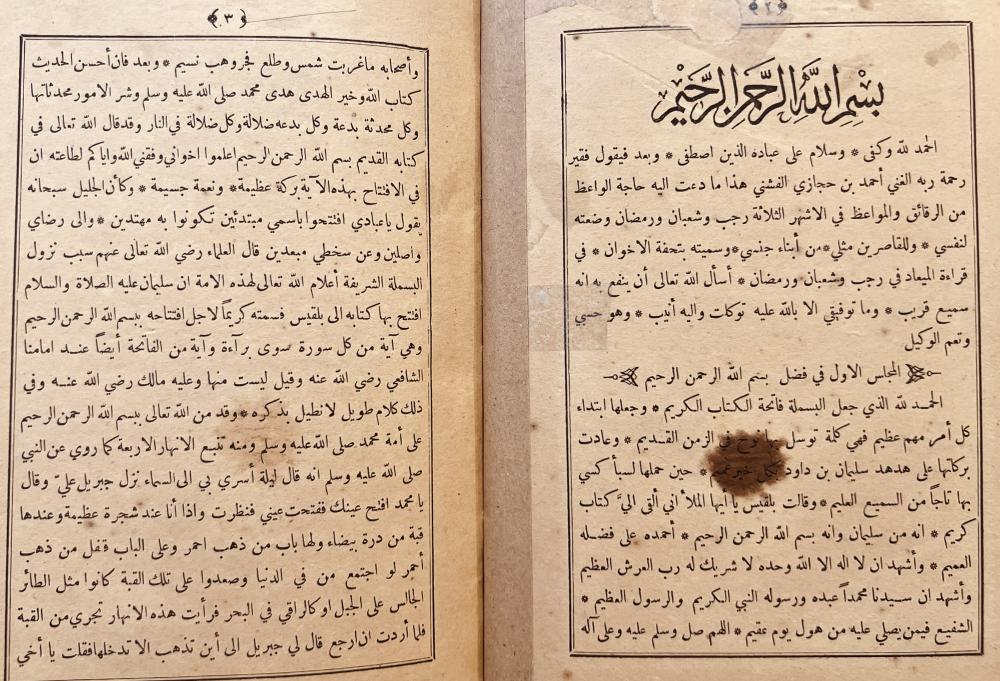 ﴿٢﴾
بسم الله الرحمن الرحيم
الحمد لله وكفى * وسلام على عباده الذين اصطفى * وبعد فيقول فقير
رحمة ربه الغني أحمد بن حجازي الفشني هذا ما دعت اليه حاجة الواعظ
من الرقائق والمواعظ في الاشهر الثلاثة رجب وشعبان ورمضان وضعته
لنفسي * وللقاصرين مثلي * من أبناء جنسي * وسميته بتحفة الاخوان * في
قراءة الميعاد في رجب وشعبان ورمضان * أسأل الله تعالى أن ينفع به انه
سميع قريب * وما توفيقي الا بالله عليه توكلت واليه أنيب * وهو حسبي
ونعم الوكيل
المجلس الاول في فضل بسم الله الرحمن الرحيم
الحمد لله الذي جعل البسملة فاتحة الكتاب الكريم * وجعلها ابتداء
كل أمر مهم عظيم فهي كلمة توسل بها نوح في الزمن القديم * وعادت
بركاتها على هدهد سليمان بن داود بكل خير عميم * حين حملها لسبأ كسي
بها تاجاً من السميع العليم * وقالت بلقيس يا أيها الملأ اني ألقي اليَّ كتاب
كريم * انه من سليمان وانه بسم الله الرحمن الرحيم * أحمده على فضله
العميم * وأشهد ان لا اله الا الله وحده لا شريك له رب العرش العظيم
وأشهد ان سيدنا محمداً عبده ورسوله النبي الكريم والرسول العظيم *
الشفيع فيمن يصلي عليه من هول يوم عقيم * اللهم صل وسلم عليه وعلى آله
﴿٣﴾
وأصحابه ماغربت شمس وطلع فجر وهب نسيم * وبعد فان أحسن الحديث
كتاب الله وخير الهدى هدى محمد صلى الله عليه وسلم وشر الامور محدثاتها
وكل محدثة بدعة وكل بدعه ضلالة وكل ضلالة في النار وقد قال الله تعالى في
كتابه القديم بسم الله الرحمن الرحيم اعلموا اخواني وفقني الله واياكم لطاعته ان
في الافتتاح بهذه الآية بركة عظيمة * ونعمة جسيمة * وكأن الجليل سبحانه
يقول ياعبادي افتتحوا باسمي مبتدئين تكونوا به مهتدين * والى رضاي
واصلين وعن سخطي مبعدين قال العلماء رضي الله تعالى عنهم سبب نزول
البسملة الشريفة أعلام الله تعالى لهذه الامة ان سليمان عليه الصلاة والسلام
افتتح بها كتابه الى بلقيس فسمته كريماً لاجل افتتاحه ببسم الله الرحمن الرحيم
وهي آية من كل سورة سوى براءة وآية من الفاتحة أيضاً عند امامنا
الشافعي رضي الله عنه وقيل ليست منها وعليه مالك رضي الله عنه وفي
ذلك كلام طويل لا نطيل بذكره * وقد من الله تعالى ببسم الله الرحمن الرحيم
على أمة محمد صلى الله عليه وسلم ومنه تنبع الانهار الاربعة كما روي عن النبي
صلى الله عليه وسلم انه قال ليلة أسري بي الى السماء نزل جبريل عليّ وقال
يا محمد افتح عينك ففتحت عيني فنظرت واذا أنا عند شجرة عظيمة وعندها
قبة من درة بيضاء ولها باب من ذهب احمر وعلى الباب قفل من ذهب
أحمر لو اجتمع من في الدنيا وصعدوا على تلك القبة كانوا مثل الطائر
الجالس على الجبل او كالراقي في البحر فرأيت هذه الانهار تجري من القبة
فلما أردت ان ارجع قال لي جبريل الى أين تذهب الا تدخلها فقلت يا أخي